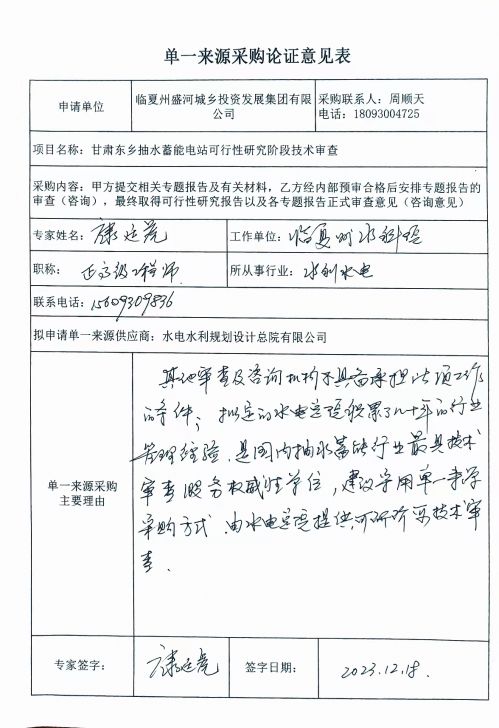 单一来源采购论证意见表
申请单位
临夏州盛河城乡投资发展集团有限公司
采购联系人：周顺天
电话：18093004725
项目名称：甘肃东乡抽水蓄能电站可行性研究阶段技术审查
采购内容：甲方提交相关专题报告及有关材料，乙方经内部预审合格后安排专题报告的
审查（咨询），最终取得可行性研究报告以及各专题报告正式审查意见（咨询意见）
专家姓名：康廷
工作单位：临夏州水科
职称：正高级工程师
所从事行业：水利水电
联系电话：15609309836
拟申请单一来源供应商：水电水利规划设计总院有限公司
单一来源采购
主要理由
其他审查及咨询机构不具备承担此项工作
的条件；拟定的水电总院积累了几十年的行业
管理经验，是国内抽水蓄能行业最具技术
审查服务权威性单位，建议采用单一来源
采购方式，由水电总院提供可研阶段技术审
查。
专家签字：
康廷
签字日期：
2023.12.18.